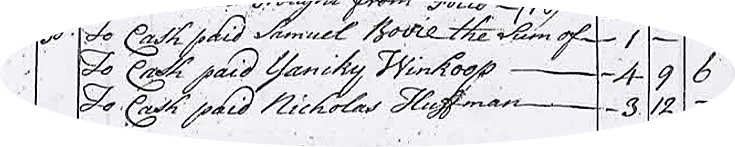 brought from Folio
To Cash paid Samuel Bovie the Sum of — 1 —
To Cash paid Yaniky Winkoop — 4 9 6
To Cash paid Nicholas Huffman — 3 12 —